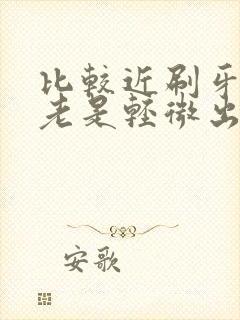 比較近刷牙
老是輕微出
安歌